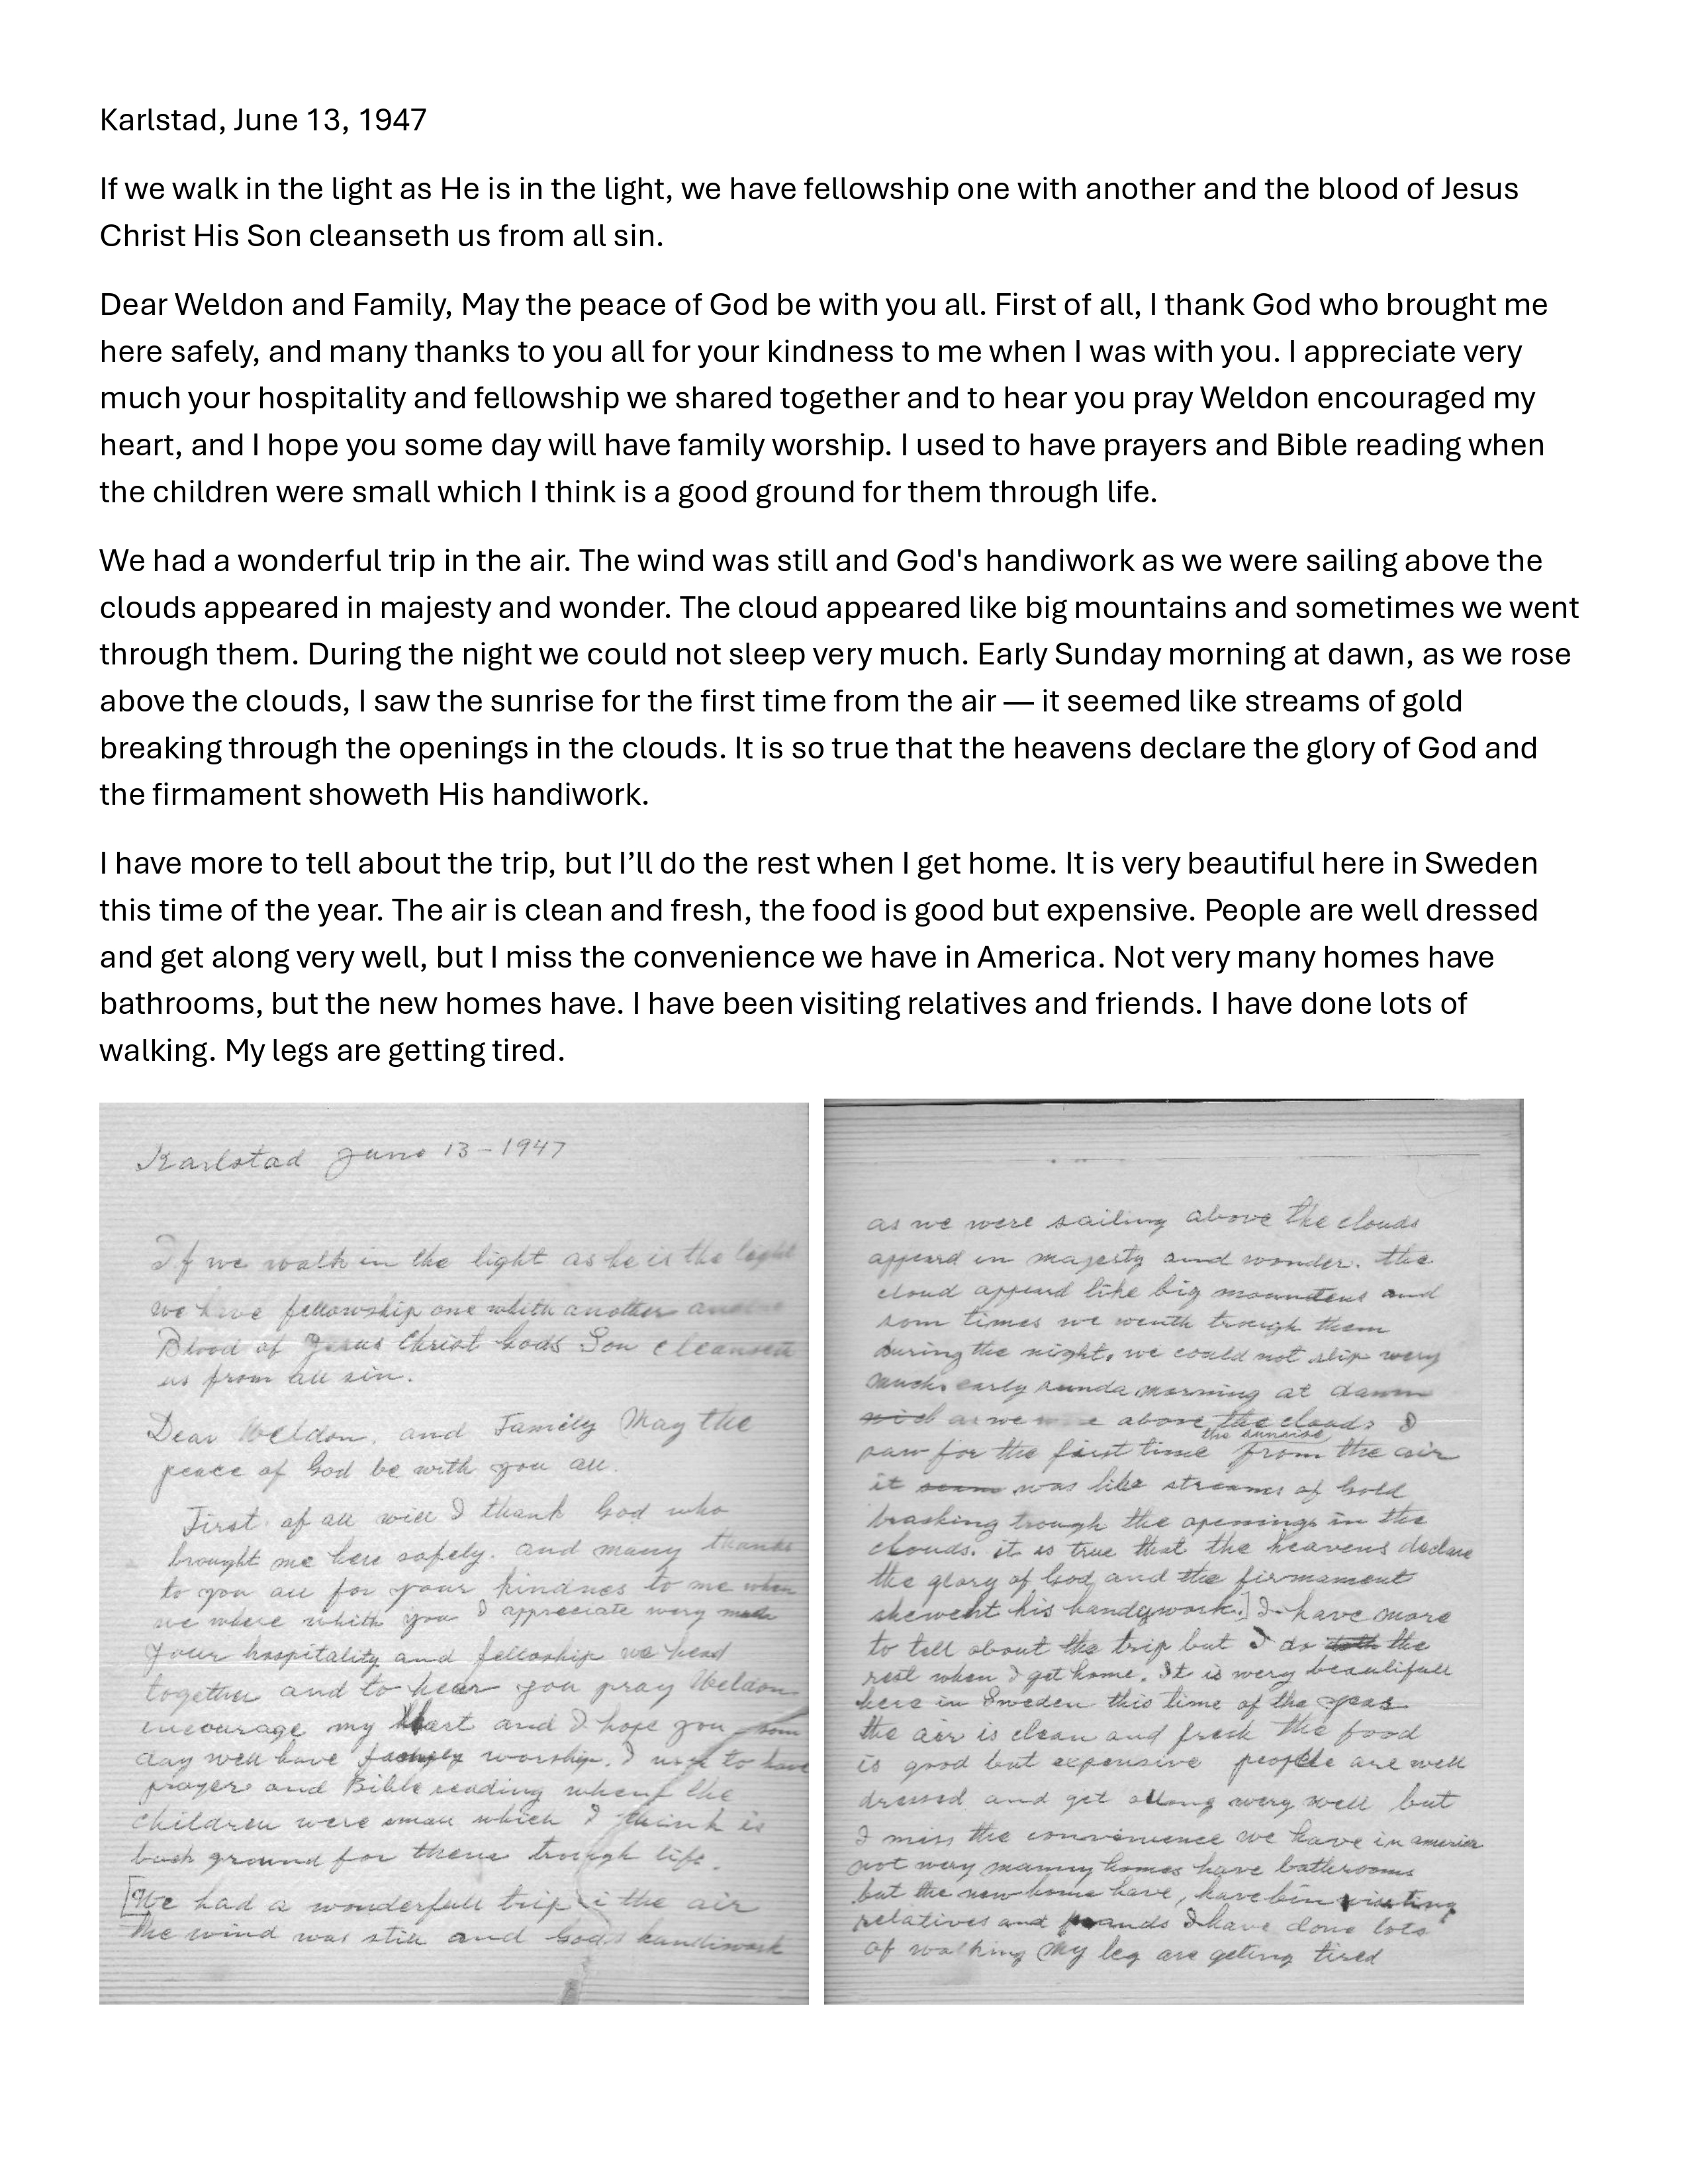 Karlstad, June 13, 1947
If we walk in the light as He is in the light, we have fellowship one with another and the blood of Jesus
Christ His Son cleanseth us from all sin.
Dear Weldon and Family, May the peace of God be with you all. First of all, I thank God who brought me
here safely, and many thanks to you all for your kindness to me when I was with you. I appreciate very
much your hospitality and fellowship we shared together and to hear you pray Weldon encouraged my
heart, and I hope you some day will have family worship. I used to have prayers and Bible reading when
the children were small which I think is a good ground for them through life.
We had a wonderful trip in the air. The wind was still and God's handiwork as we were sailing above the
clouds appeared in majesty and wonder. The cloud appeared like big mountains and sometimes we went
through them. During the night we could not sleep very much. Early Sunday morning at dawn, as we rose
above the clouds, I saw the sunrise for the first time from the air — it seemed like streams of gold
breaking through the openings in the clouds. It is so true that the heavens declare the glory of God and
the firmament showeth His handiwork.
I have more to tell about the trip, but I’ll do the rest when I get home. It is very beautiful here in Sweden
this time of the year. The air is clean and fresh, the food is good but expensive. People are well dressed
and get along very well, but I miss the convenience we have in America. Not very many homes have
bathrooms, but the new homes have. I have been visiting relatives and friends. I have done lots of
walking. My legs are getting tired.
Karlstad June 13-1947
If we walk in the light as he is the light
we have fellowship one whith another
Blood of Jesus Christ Gods Son
us from all sin.
Dear Weldon. and Family May the
peace of God be with you all.
First of all will I thank God who
brought me here safely. and many thanks
to you all for your kindnes to me when
we where whith you I appreciate wery much
your hospitality and felloship we head
together and to hear you pray Weldon
encourage my heart and I hope you som
day well have family worship. I to have
prayer and Bible reading when the
children were small which I think is
back ground for them trough life.
[We had a wonderfull trip i the air
the wind was still and Gods handiwork
as we were sailing above the clouds
appeard in majesty and wonder. the
cloud appeard like big and
som times we wenth trough them
during the night. we could not slip wery
much. early sunda morning at dawn
as we above the clouds I
saw for the first time the sunrise from the air
it was like streams of Gold
braking trough the openings in the
clouds. it is true that the heavens declare
the glory of God and the firmament
shewent his handywork.] I have more
to tell about the trip but I do the
rest when I get home. It is wery beautifull
here in Sweden this time of the year
the air is clean and fresh the food
is good but expensive people are well
dressed and get allong wery well but
I miss the convenience we have in america
not wery manny homes have bathrooms
but the new home have, have bin visiting
relatives and I have done lots
of walking My leg are geting tired